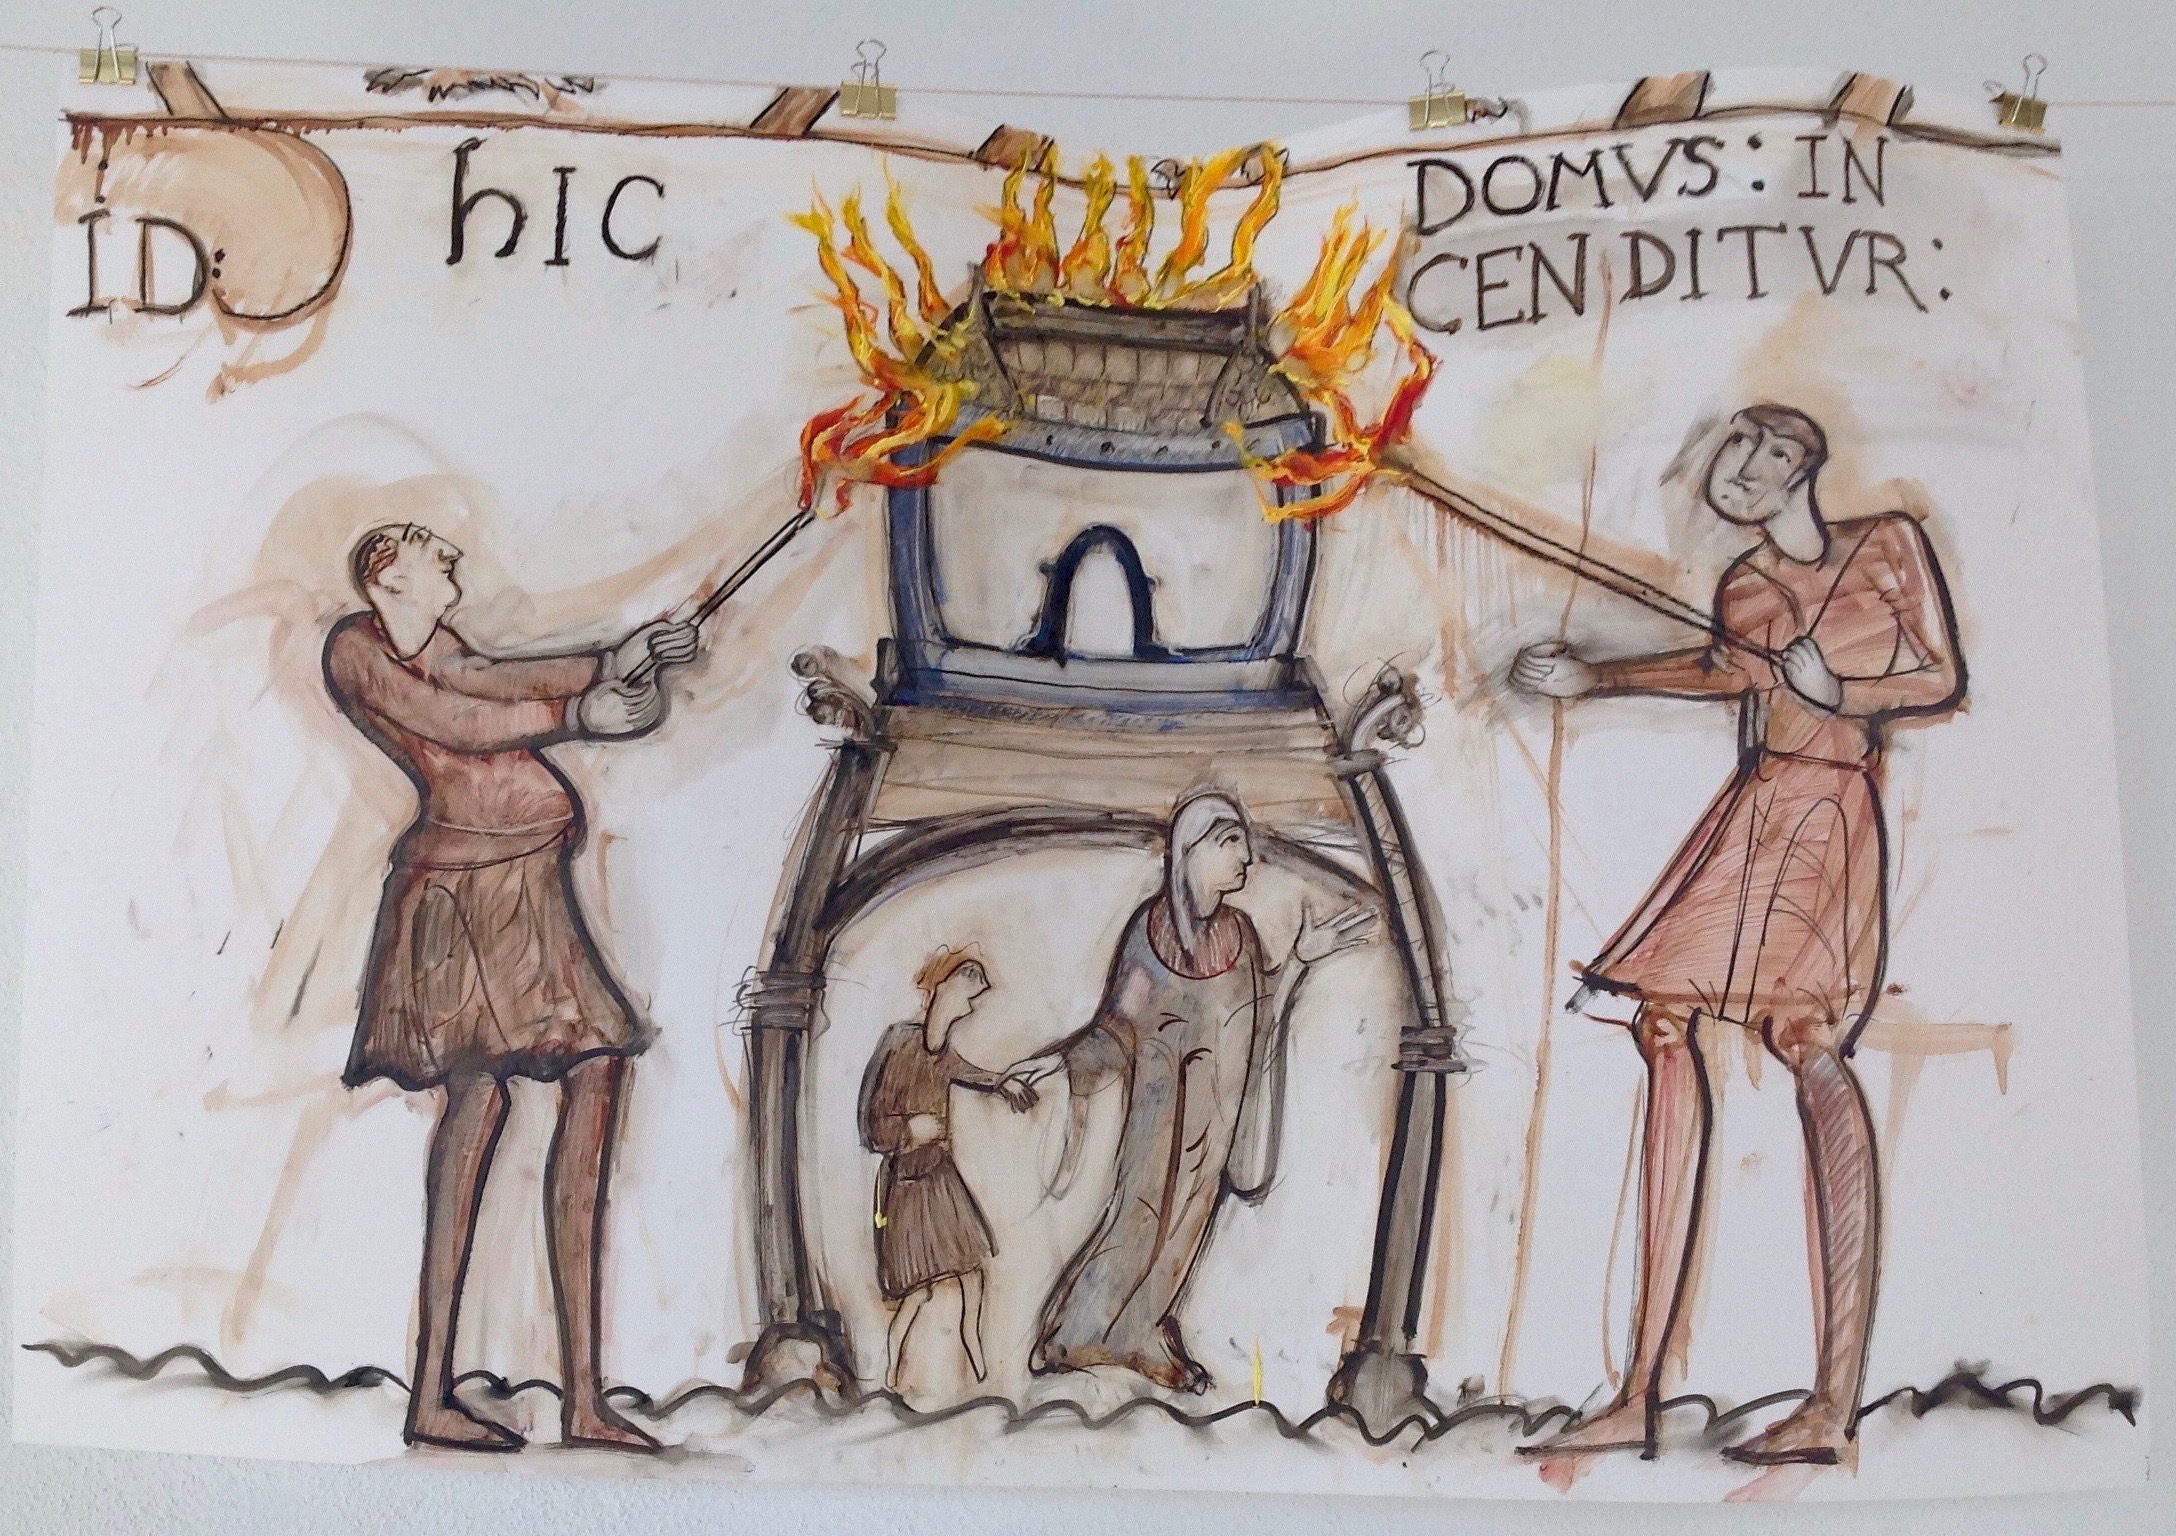 ID: hIC
DOMVS: IN
CENDITVR: